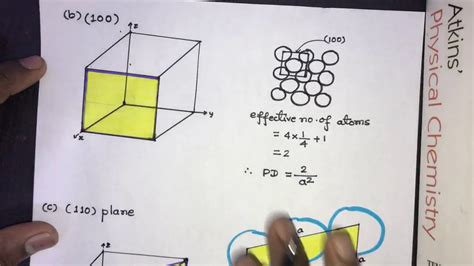 (b) (100)
z
y
x
(100)
effective no. of atoms
= 4x 1/4 + 1
= 2
∴ PD = 2/a²
(c) (110) plane
z
a
Atkins'
Physical Chemistry